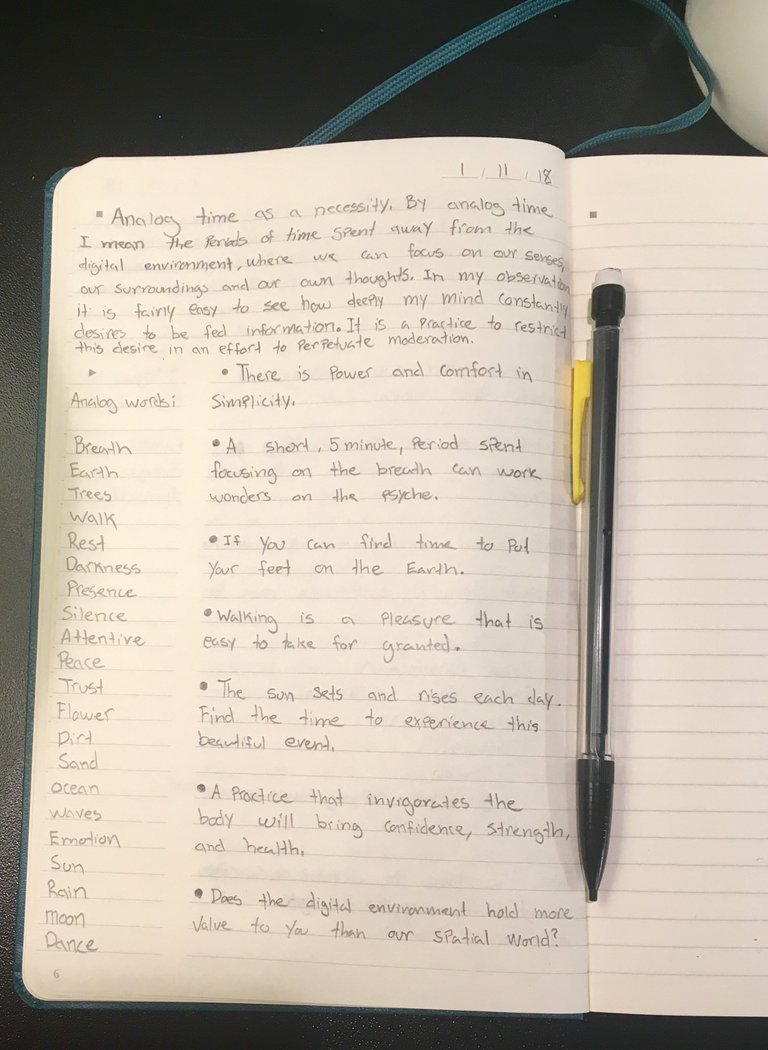 1 / 11 / 18
▪ Analog time as a necessity. By analog time
I mean the periods of time spent away from the
digital environment, where we can focus on our senses,
our surroundings and our own thoughts. In my observation
it is fairly easy to see how deeply my mind constantly
desires to be fed information. It is a practice to restrict
this desire in an effort to perpetuate moderation.
Analog words:
Breath
Earth
Trees
Walk
Rest
Darkness
Presence
Silence
Attentive
Peace
Trust
Flower
Dirt
Sand
Ocean
Waves
Emotion
Sun
Rain
Moon
Dance
• There is power and comfort in
simplicity.
• A short, 5 minute, period spent
focusing on the breath can work
wonders on the psyche.
• If you can find time to put
your feet on the Earth.
• Walking is a pleasure that is
easy to take for granted.
• The sun sets and rises each day.
Find the time to experience this
beautiful event.
• A practice that invigorates the
body will bring confidence, strength,
and health.
• Does the digital environment hold more
value to you than our spatial world?
6